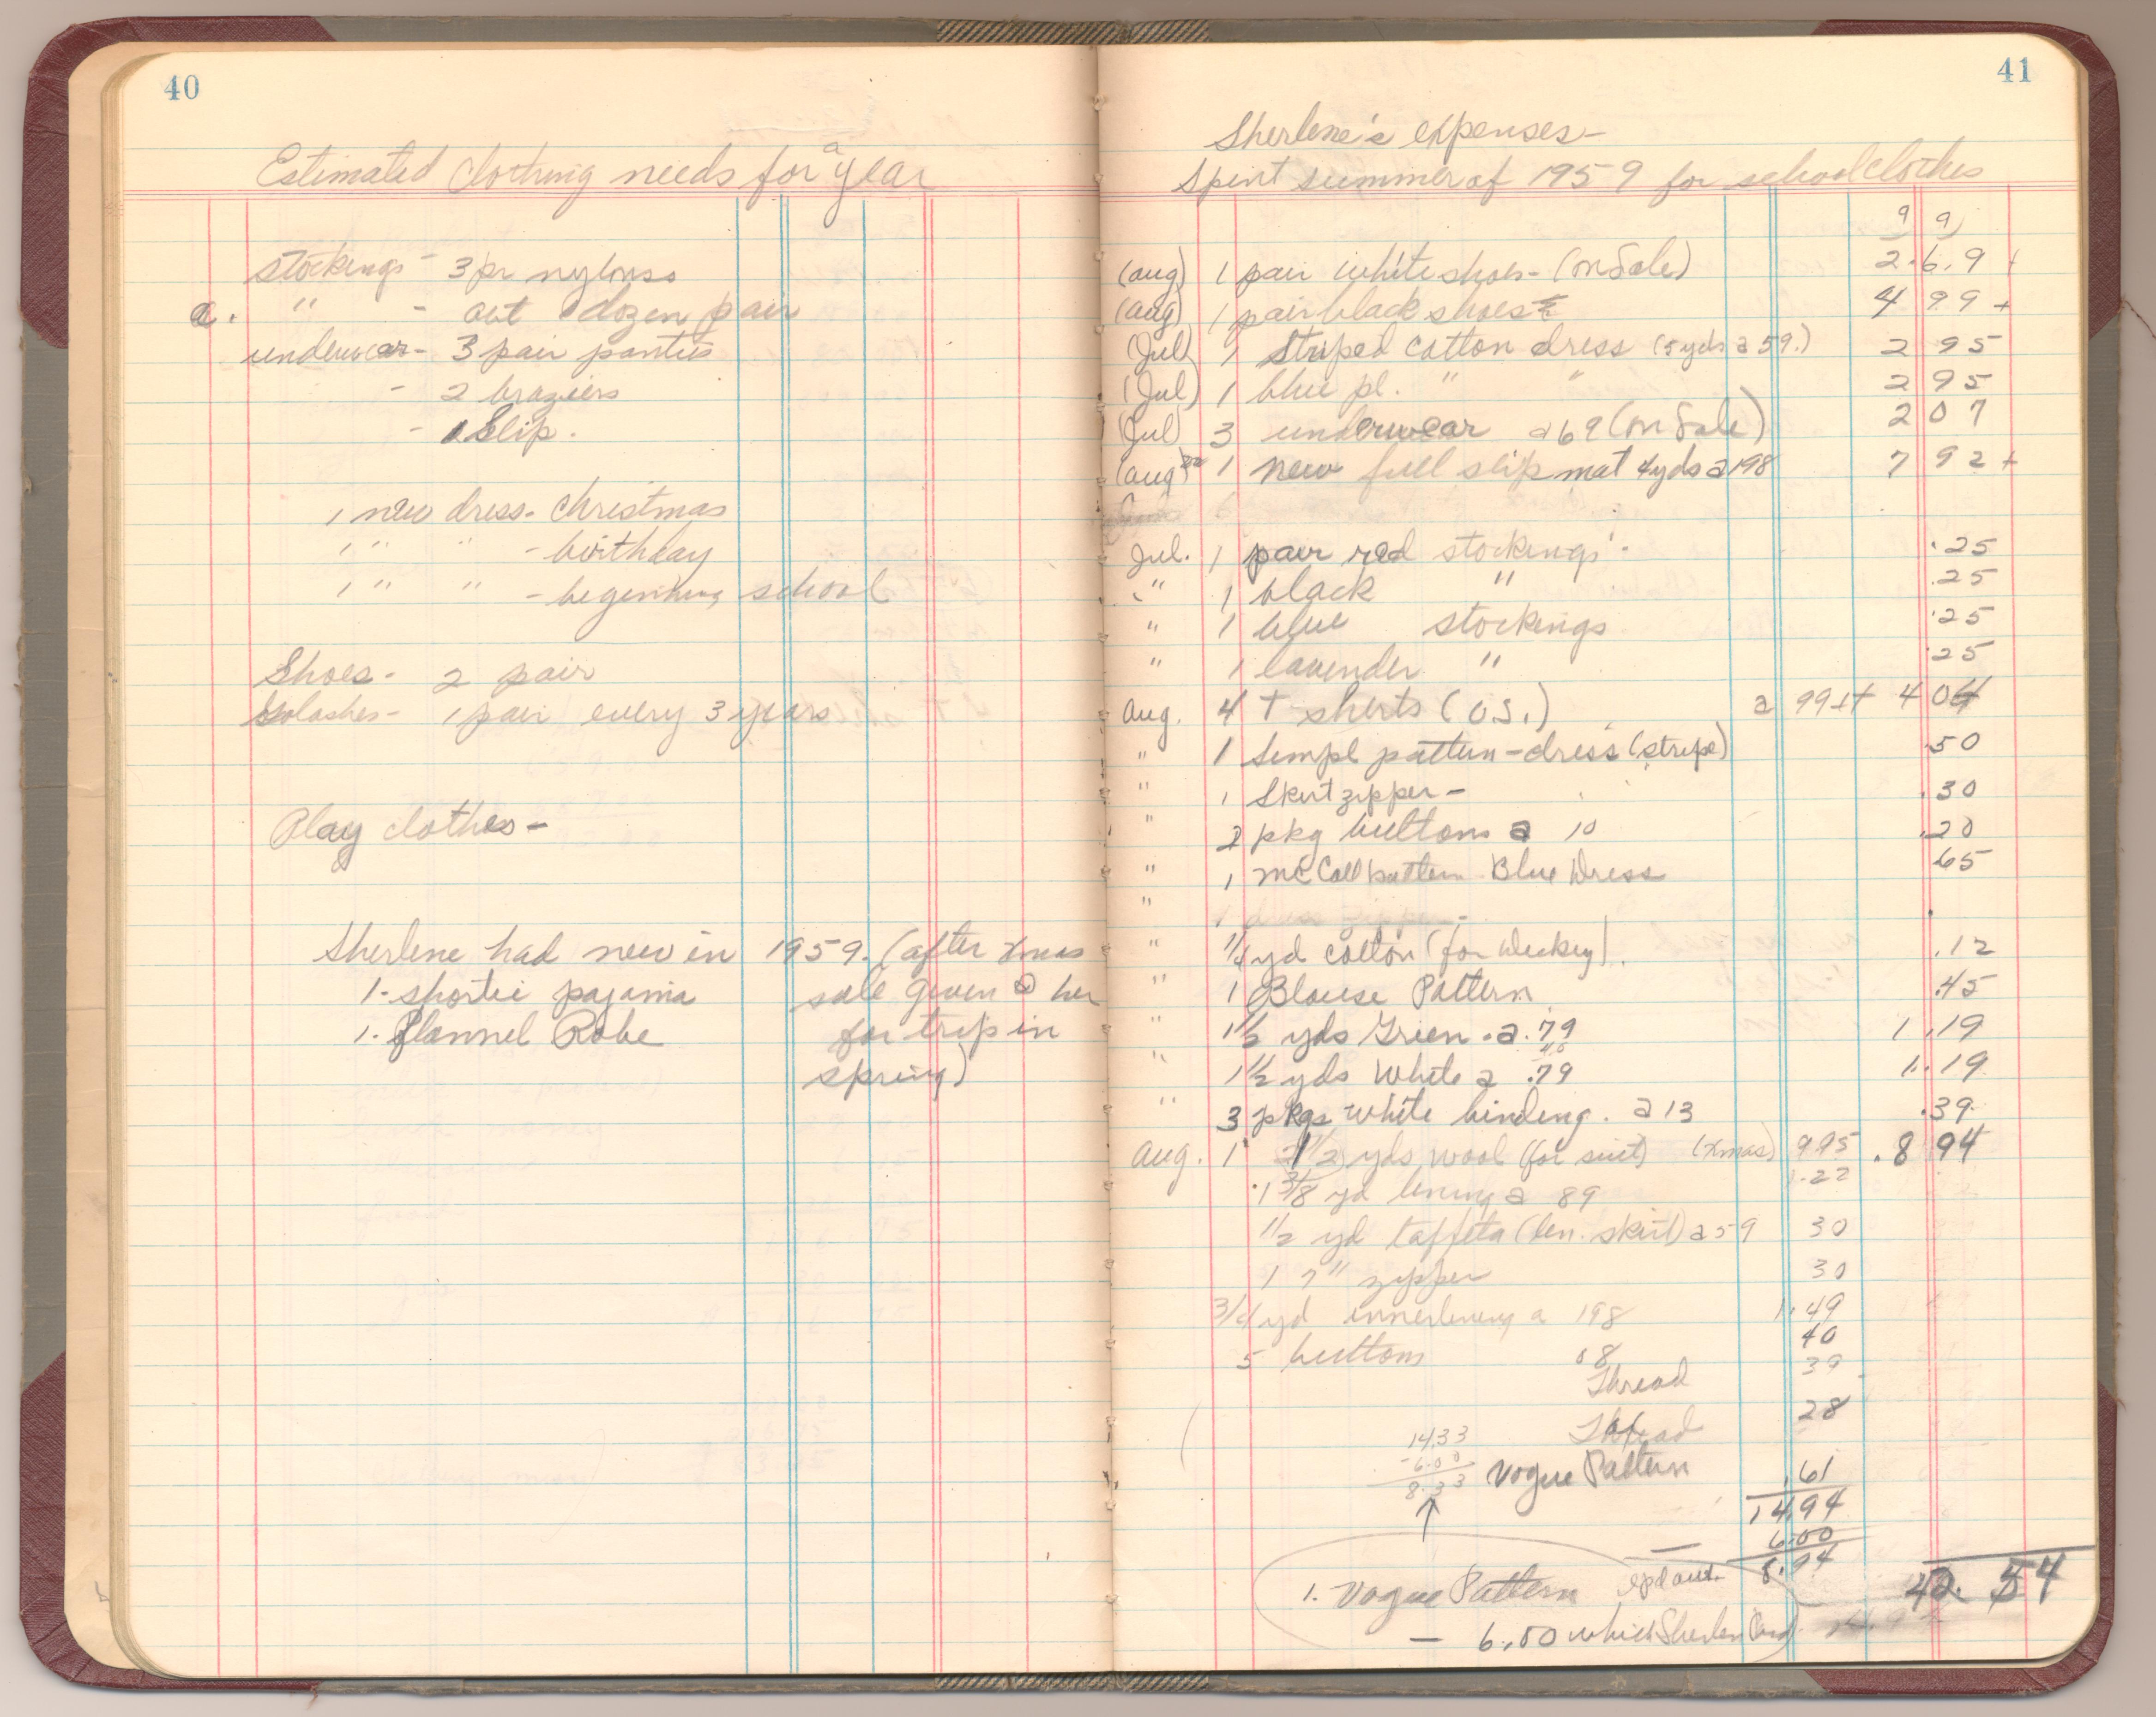 40
Estimated clothing needs for a year
stockings - 3 pr nylons
a. " - abt dozen pair
underwear - 3 pair panties
- 2 braziers
- 1 slip.
1 new dress - Christmas
1 " " - birthday
1 " " - beginning school
Shoes - 2 pair
Golashes - 1 pair every 3 years
Play clothes -
Sherlene had new in 1959. (after xmas
1 - shortie pajama sale given to her
1 - flannel Robe for trip in
spring)
41
Sherlene's expenses -
Spent summer of 1959 for school clothes
9 9
(Aug) 1 pair white shoes - (on Sale) 2.69 +
(Aug) 1 pair black shoes 4 99 +
(Jul) 1 Striped Cotton dress (5 yds a 59.) 2 95
(Jul) 1 blue pl. " " 2 95
(Jul) 3 underwear a 69 (on Sale) 2 07
(Aug) 1 new full slip mat 4 yds a 198 7 92 +
Jul. 1 pair red stockings - .25
" 1 black " .25
" 1 blue stockings .25
" 1 lavender " .25
Aug. 4 T-shirts (O.S.) a 99 4 04
" 1 Simpl pattern - dress (stripe) .50
" 1 Skirt zipper - .30
" 2 pkg buttons a 10 .20
" 1 McCall pattern Blue Dress .65
" 1 dress zipper -
" 1/4 yd cotton (for dickey). .12
" 1 Blouse Pattern .45
" 1 1/2 yds Green . a .79 1.19
" 1 1/2 yds White a .79 1.19
" 3 pkgs white binding. a 13 .39
Aug. 1 2 1/2 yds wool (for suit) (Xmas) 9.95 . 8 94
1 3/8 yd lining a 89 1.22
1/2 yd taffeta (len. skirt) a 59 30
1 7" zipper 30
3/4 yd innerlining a 198 1.49
5 buttons 08 40
Thread 39
Thread 28
14.33
-6.00
8.33
Vogue Pattern .61
14.94
6.00
8.94
42.54
1. Vogue Pattern
- 6.00 which Sherlene